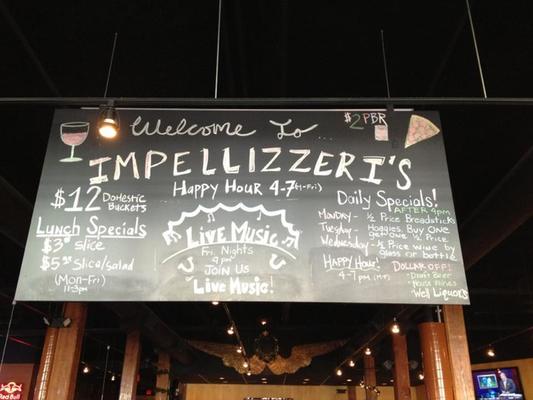 Welcome To...
$2 PBR
IMPELLIZZERI'S
Happy Hour 4-7 (M-Fri)
$12 Domestic
Buckets
Lunch Specials
$3 Slice
$5 Slice/salad
(Mon-Fri)
11-3pm
Live Music
Fri. Nights
9pm
Join Us
Live Music!
Daily Specials!
AFTER 4pm
Monday - ½ Price Breadsticks
Tuesday - Hoagies, Buy one
get one ½ Price
Wednesday - ½ Price wine by
glass or bottle.
Happy Hour!
4-7pm
Dollar off!
- Draft Beer
- House Wines
Well Liquors
Red Bull